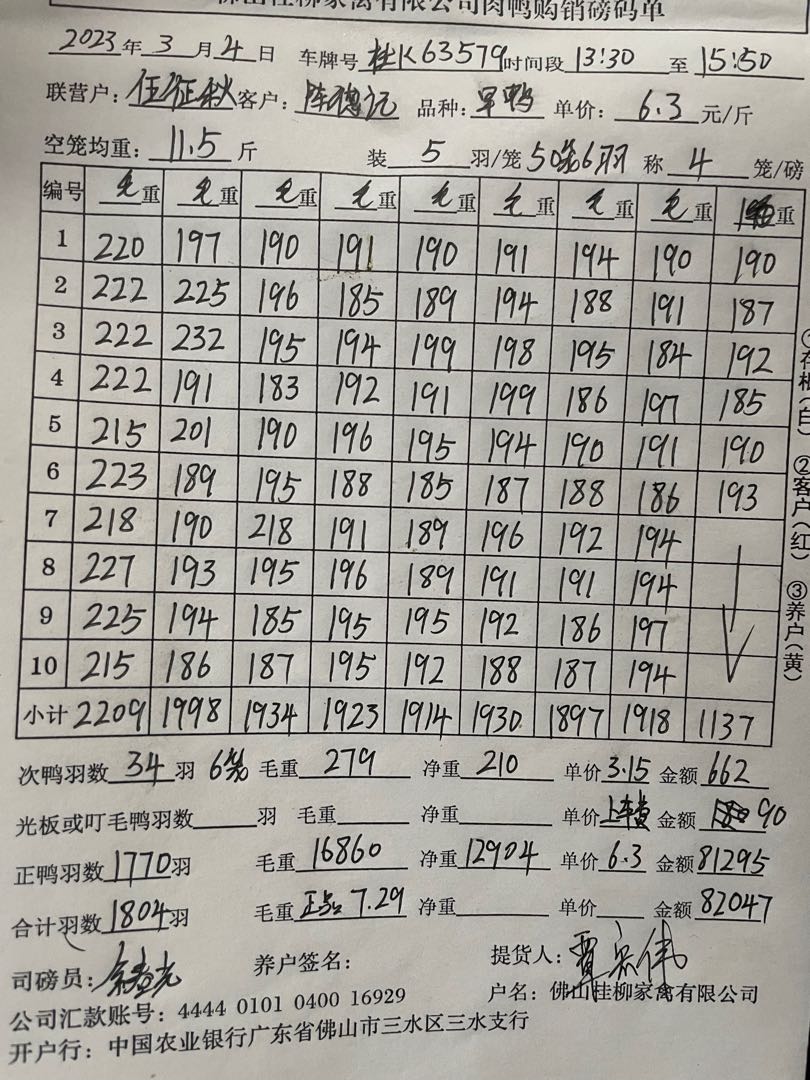 佛山桂柳家禽有限公司肉鸭购销磅码单
2023年3月4日 车牌号 桂K63579 时间段 13:30 至 15:50
联营户: 伍征秋 客户: 陈德记 品种: 旱鸭 单价: 6.3 元/斤
空笼均重: 11.5 斤 装 5 羽/笼 50笼6羽 称 4 笼/磅
编号 毛重 毛重 毛重 毛重 毛重 毛重 毛重 毛重 重
1 220 197 190 191 190 191 194 190 190
2 222 225 196 185 189 194 188 191 187
3 222 232 195 194 199 198 195 184 192
4 222 191 183 192 191 199 186 197 185
5 215 201 190 196 195 194 190 191 190
6 223 189 195 188 185 187 188 186 193
7 218 190 218 191 189 196 192 194
8 227 193 195 196 189 191 191 194
9 225 194 185 195 195 192 186 197
10 215 186 187 195 192 188 187 194
小计 2209 1998 1934 1923 1914 1930 1897 1918 1137
次鸭羽数 34 羽 6笼 毛重 279 净重 210 单价 3.15 金额 662
光板或叮毛鸭羽数 羽 毛重 净重 单价 上车费 金额 90
正鸭羽数 1770 羽 毛重 16860 净重 12904 单价 6.3 金额 81295
合计羽数 1804 羽 毛重 正品 7.29 净重 单价 金额 82047
司磅员: 养户签名: 提货人:
公司汇款账号: 4444 0101 0400 16929 户名: 佛山桂柳家禽有限公司
开户行: 中国农业银行广东省佛山市三水区三水支行
①存根(白) ②客户(红) ③养户(黄)